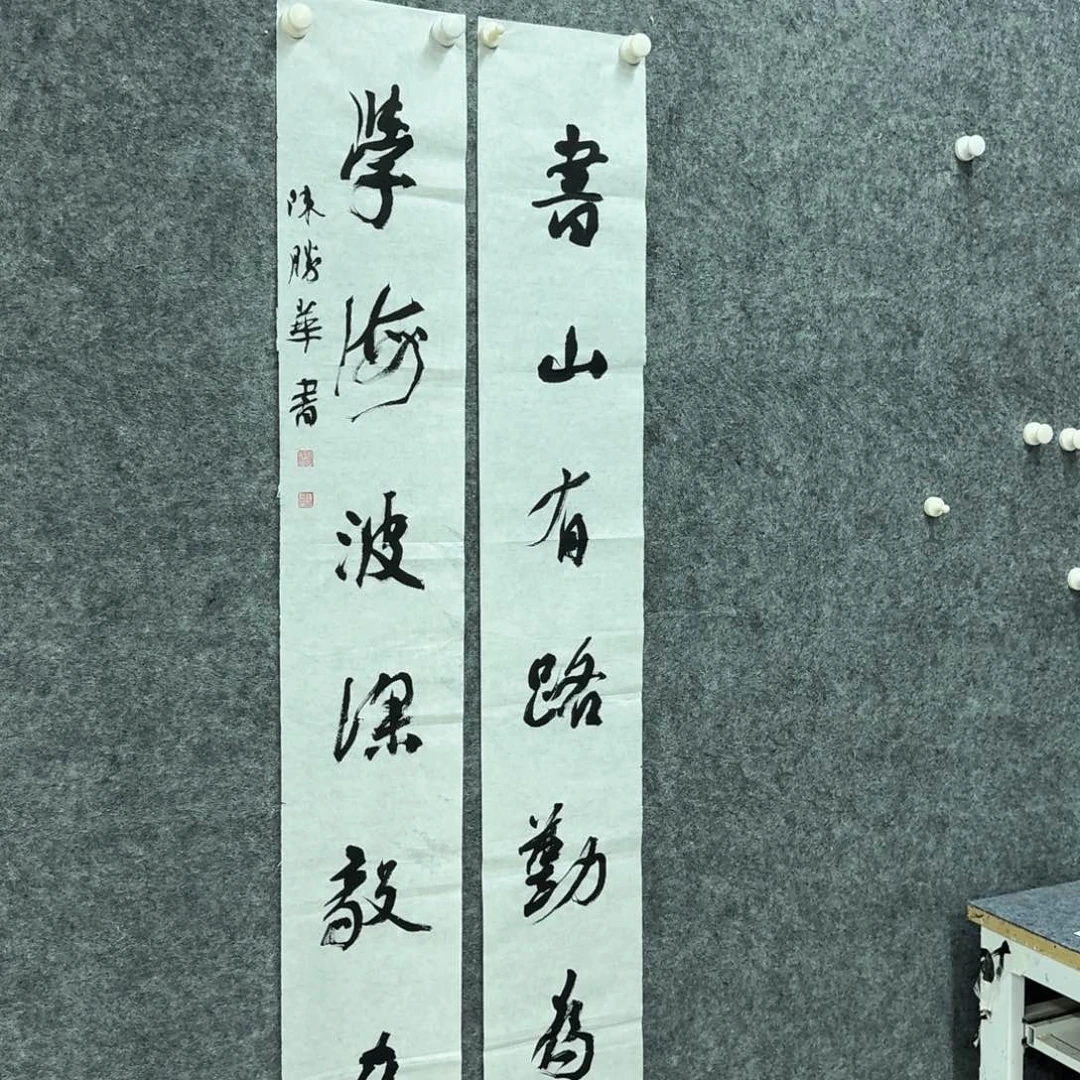 書山有路勤為
學海波深毅
陳勝華書